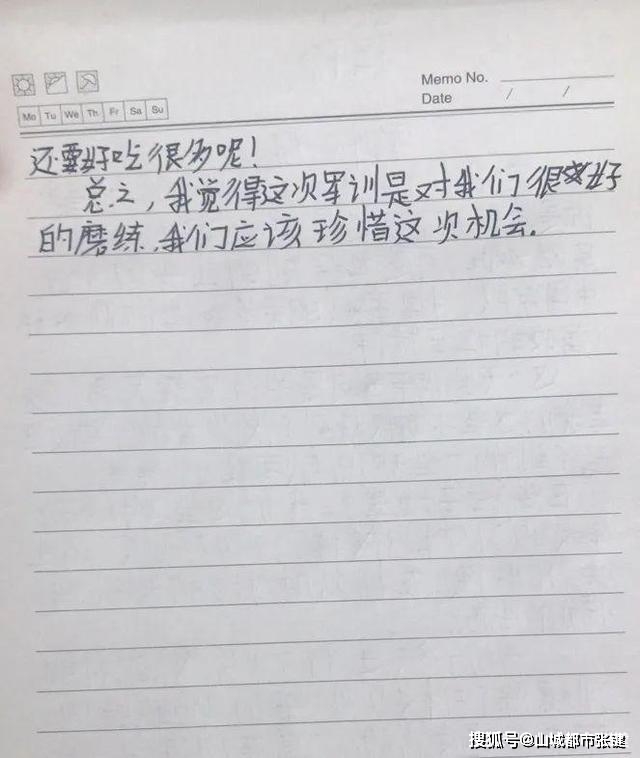 Memo No.
Date / /
Mo Tu We Th Fr Sa Su
还要好吃很多呢!
总之,我觉得这次军训是对我们很好
的磨练,我们应该珍惜这次机会.
搜狐号@山城都市张键